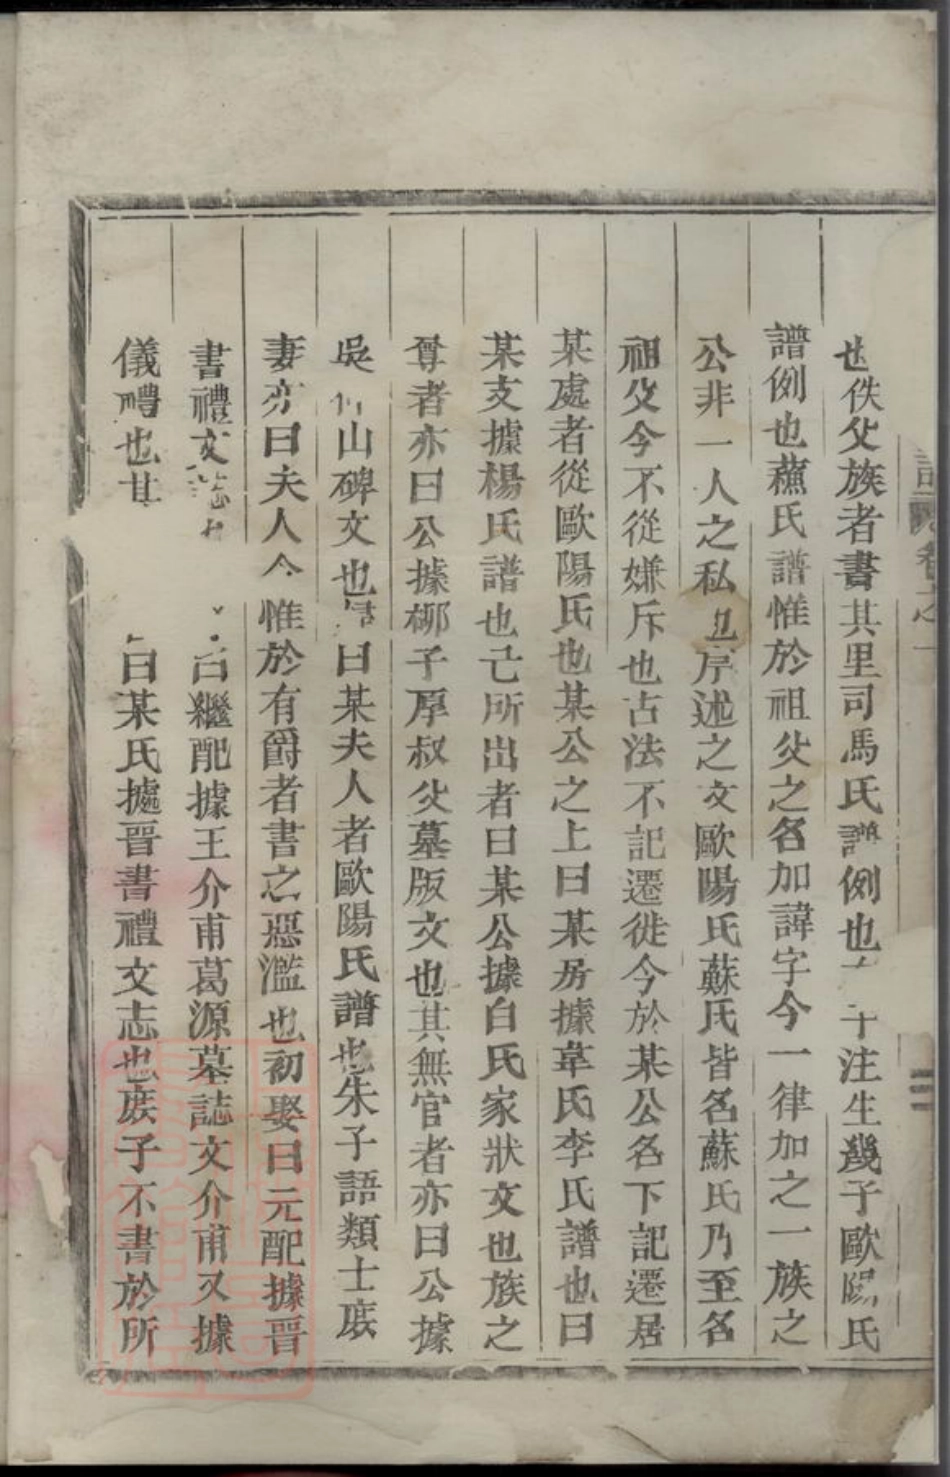 佚父族者書其里司馬氏譜例也 注生幾子歐陽氏
譜例也蘇氏譜惟於祖父之名加諱字今一律加之一族之
公非一人之私也 述之文歐陽氏蘇氏皆名蘇氏乃至名
祖父今不從嫌斥也古法不記遷徙今於某公名下記遷居
某處者從歐陽氏也某公之上曰某房據韋氏李氏譜也曰
某支據楊氏譜也己所出者曰某公據白氏家狀文也族之
尊者亦曰公據柳子厚叔父墓版文也其無官者亦曰公據
吳 山碑文也 曰某夫人者歐陽氏譜也朱子語類士庶
妻亦曰夫人今惟於有爵者書之惡濫也初娶曰元配據晉
書禮文志 曰繼配據王介甫葛源墓誌文介甫又據
儀禮也 曰某氏據晉書禮文志也庶子不書於所
譜 卷之一
二